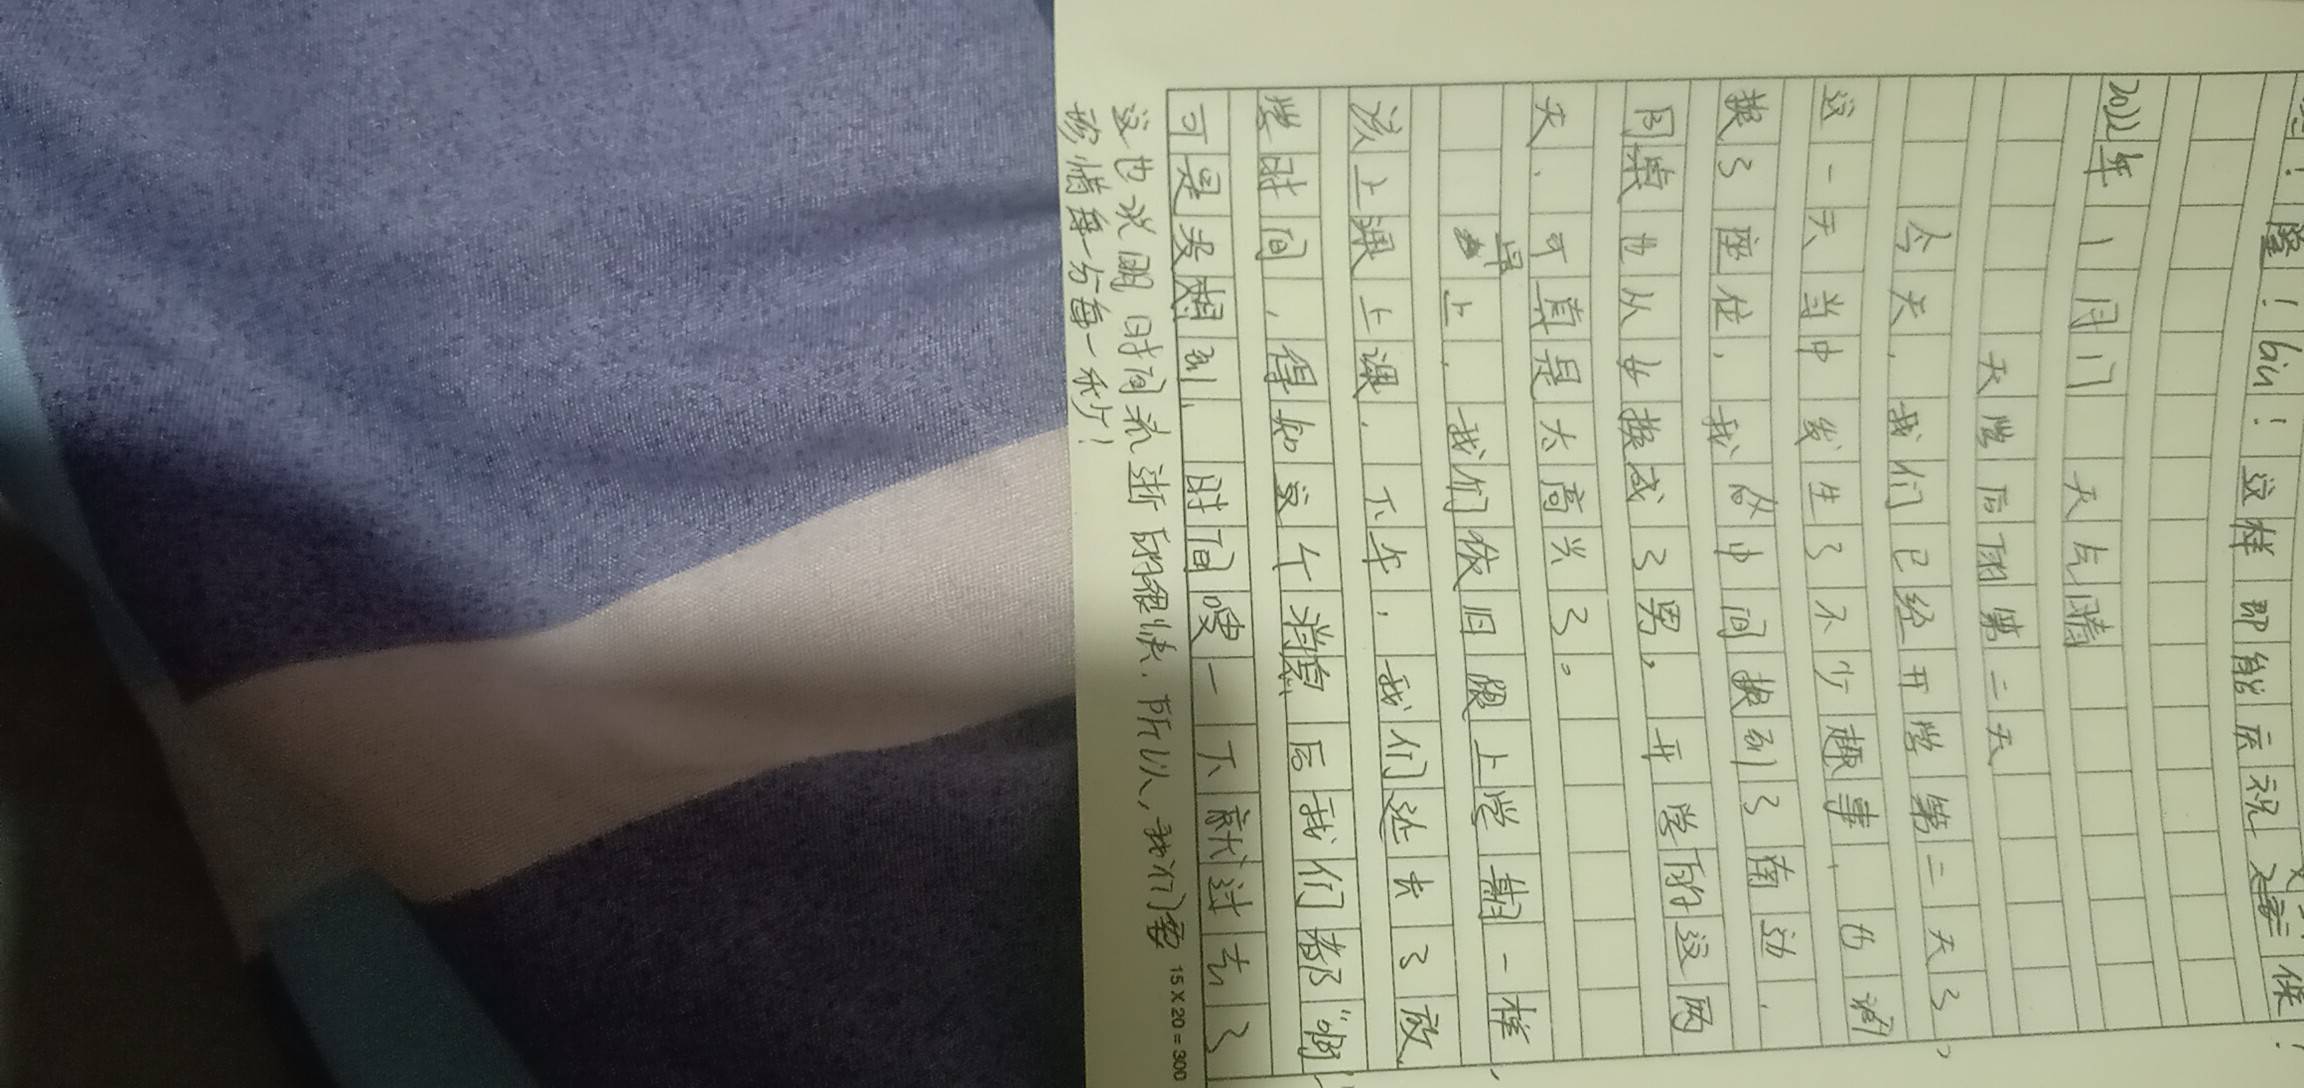 ！隆！biu！这样那能庆祝之意 保！
2022年1月1门 天气晴
天学后的第二天
今天，我们已经开学第二天了，
这一天当中发生了不少趣事，也调
换了座位，我从中间换到了南边，
同桌也从女换成了男。开学的这两
天，可真是太高兴了。
早上，我们依旧像上学期一样，
该上课上课，下午，我们还去了放
学时间，得知这个消息后我们都
可是没想到，时间嗖一下就过去了
这也说明时间流逝的很快，所以，我们要
珍惜每一分每一秒！
15 X 20 = 300